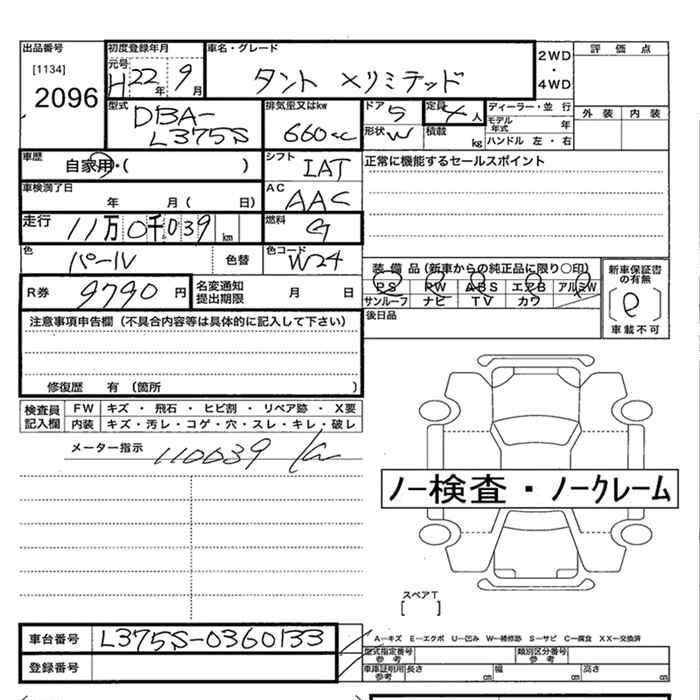 出品番号
[1134]
2096
初度登録年月
元号
H 22年 9月
車名・グレード
タント Xリミテッド
2WD
・
4WD
評価点
外装 内装
型式
DBA-
L375S
排気量又はkw
660cc
ドア 5
形状 W
定員 4人
積載 kg
ディーラー・並 行
モデル年式 年
ハンドル 左・右
車歴
自家用・( )
シフト
IAT
正常に機能するセールスポイント
車検満了日
年 月( 日)
AC
AAC
走行
11万0千039km
燃料
G
色
パール
色替
色コード
W24
R券 9790円
名変通知
提出期限
月 日
装備品(新車からの純正品に限り○印)
PS PW ABS エアB アルミW
サンルーフ ナビ TV カワ
新車保証書
の有無
車載不可
後日品
注意事項申告欄(不具合内容等は具体的に記入して下さい)
修復歴 有(箇所 )
検査員
記入欄
FW キズ・飛石・ヒビ割・リペア跡・X要
内装 キズ・汚レ・コゲ・穴・スレ・キレ・破レ
メーター指示 110039 km
ノー検査・ノークレーム
スペアT
[ ]
車台番号 L375S-0360133
登録番号
A―キズ E―エクボ U―凹み W―補修跡 S―サビ C―腐食 XX―交換済
型式指定番号
参考
類別区分番号
参考
車庫証明用
参考
長さ cm 幅 cm 高さ cm